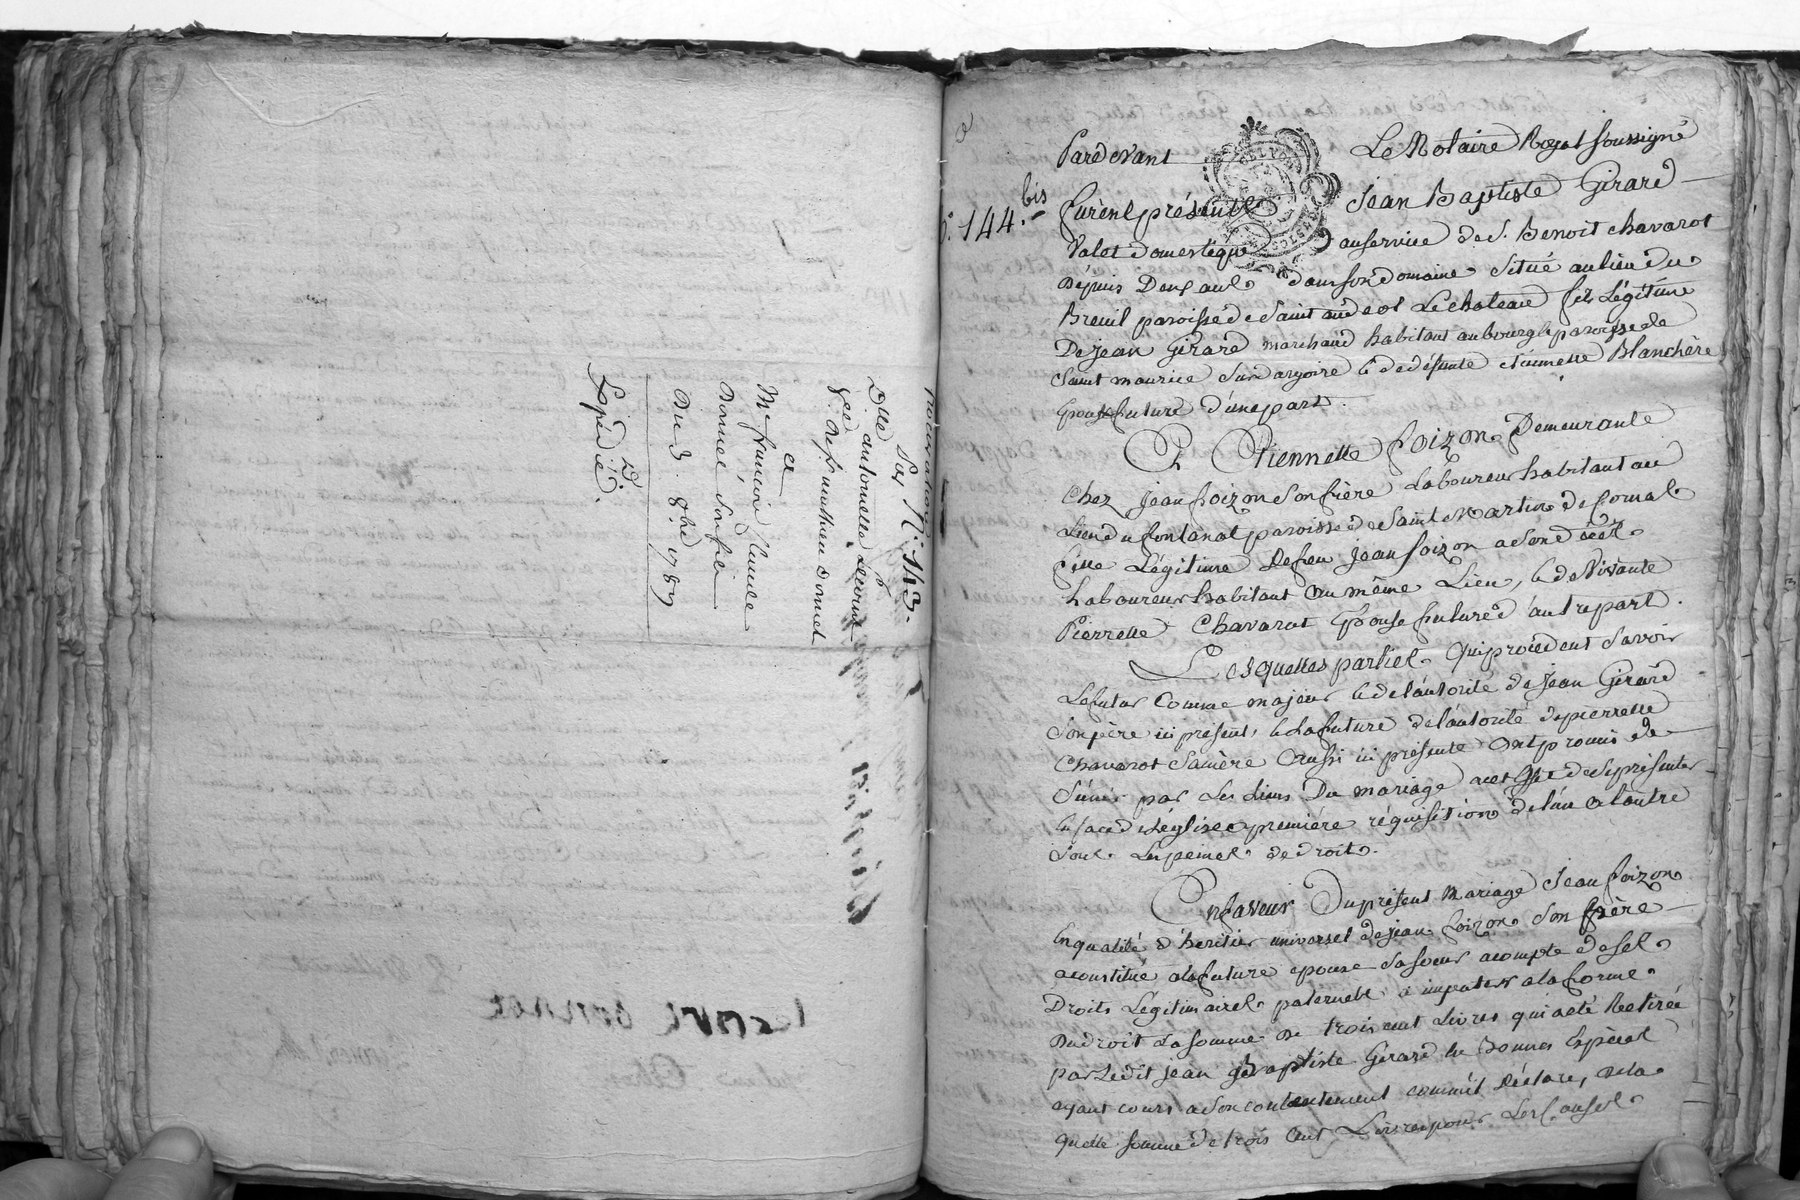 N.° 143.
Procuration
Par
Dlle antoinette
Vve de fr. mathieu Bonnet
a
Mre françois Claude
Bonnet Son fils
Du 3. 8bre 1789
Expédié.
N.° 144. bis
Pardevant Le Notaire Royal soussigné
furent présents Jean Baptiste Girard
Valet domestique au service de S. Benoit Chavarot
Depuis Deux ans dans son domaine situé au lieu du
Breuil paroisse de Saint andeol Le chateau fils Légitime
De jean Girard marchand habitant au bourg & paroisse de
Saint maurice Sur dargoire & de défunte etiennette Blanchère
Epoux futur d'une part.
Et Etiennette foizon Demeurante
Chez jean foizon Son frère Laboureur habitant au
Lieu du fontanat paroisse de Saint Martin de Cornas
fille Légitime De feu jean foizon a son décès
Laboureur habitant au même Lieu, & de Vivante
Pierrette Chavarot Epouse future d'autre part.
Lesquelles parties qui procèdent Savoir
Le futur Comme majeur & de l'autorité de jean Girard
Son père ici présent, & La future de l'autorité de pierrette
Chavarot Sa mère aussi ici présente ont promis de
S'unir par Les Liens Du mariage et de Se présenter
En face de L'église a première réquisition de l'un a l'autre
Sous Les peines de droit.
En faveur Du présent mariage Jean foizon
En qualité d'héritier universel de jean foizon Son père
a constitué a la future epouse Sa soeur acompte de Ses
Droits Légitimaires paternels a imputer a la forme
Du droit La somme De trois cent Livres qui a été Retirée
par Ledit jean Baptiste Girard En bonnes Espèces
ayant cours a Son contentement comm'il Déclare, De la
quelle somme de trois Cent Livres pour Les Causes